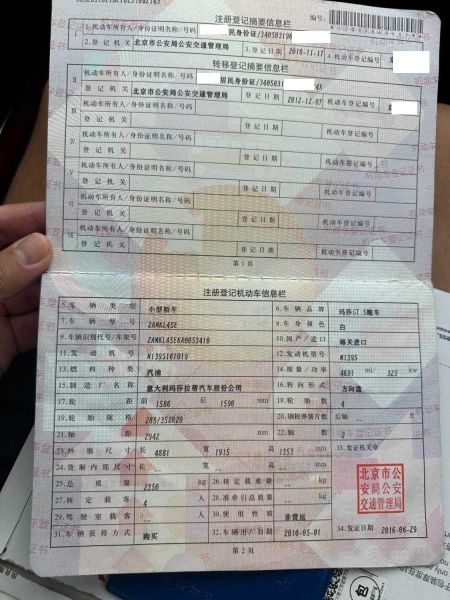 注册登记摘要信息栏
编号:
1.机动车所有人/身份证明名称/号码 民身份证/34050319
2.登记机关 北京市公安局公安交通管理局 3.登记日期 2010-11-17 4.机动车登记编号
转移登记摘要信息栏
II 机动车所有人/身份证明名称/号码 居民身份证/3405031 4X
登记机关 北京市公安局公安交通管理局 登记日期 2012-12-07 机动车登记编号
III 机动车所有人/身份证明名称/号码
登记机关 登记日期 机动车登记编号
IV 机动车所有人/身份证明名称/号码
登记机关 登记日期 机动车登记编号
V 机动车所有人/身份证明名称/号码
登记机关 登记日期 机动车登记编号
机动车所有人/身份证明名称/号码
登记机关 登记日期 机动车登记编号
机动车所有人/身份证明名称/号码
登记机关 登记日期 机动车登记编号
第1页
注册登记机动车信息栏
5.车辆类型 小型轿车 6.车辆品牌 玛莎GT.S跑车
7.车辆型号 ZAMKL45E 8.车身颜色 白
9.车辆识别代号/车架号 ZAMKL45E6A0053410 10.国产/进口 海关进口
11.发动机号 M139S161019 12.发动机型号 M139S
13.燃料种类 汽油 14.排量/功率 4691 ml/ 323 kw
15.制造厂名称 意大利玛莎拉蒂汽车股份公司 16.转向形式 方向盘
17.轮距 前 1586 后 1590 mm 18.轮胎数 4
19.轮胎规格 285/35ZR20 20.钢板弹簧片数 后轴 -- 片
21.轴距 2942 mm 22.轴数 2
23.外廓尺寸 长 4881 宽 1915 高 1353 mm 33.发证机关章
24.货厢内部尺寸 长 -- 宽 -- 高 -- mm
25.总质量 2350 kg 26.核定载质量 -- kg
27.核定载客 4 人 28.准牵引总质量 -- kg
29.驾驶室载客 -- 人 30.使用性质 非营运
31.车辆获得方式 购买 32.车辆出厂日期 2010-05-01 34.发证日期 2016-06-29
北京市公
安局公安
交通管理局
第2页